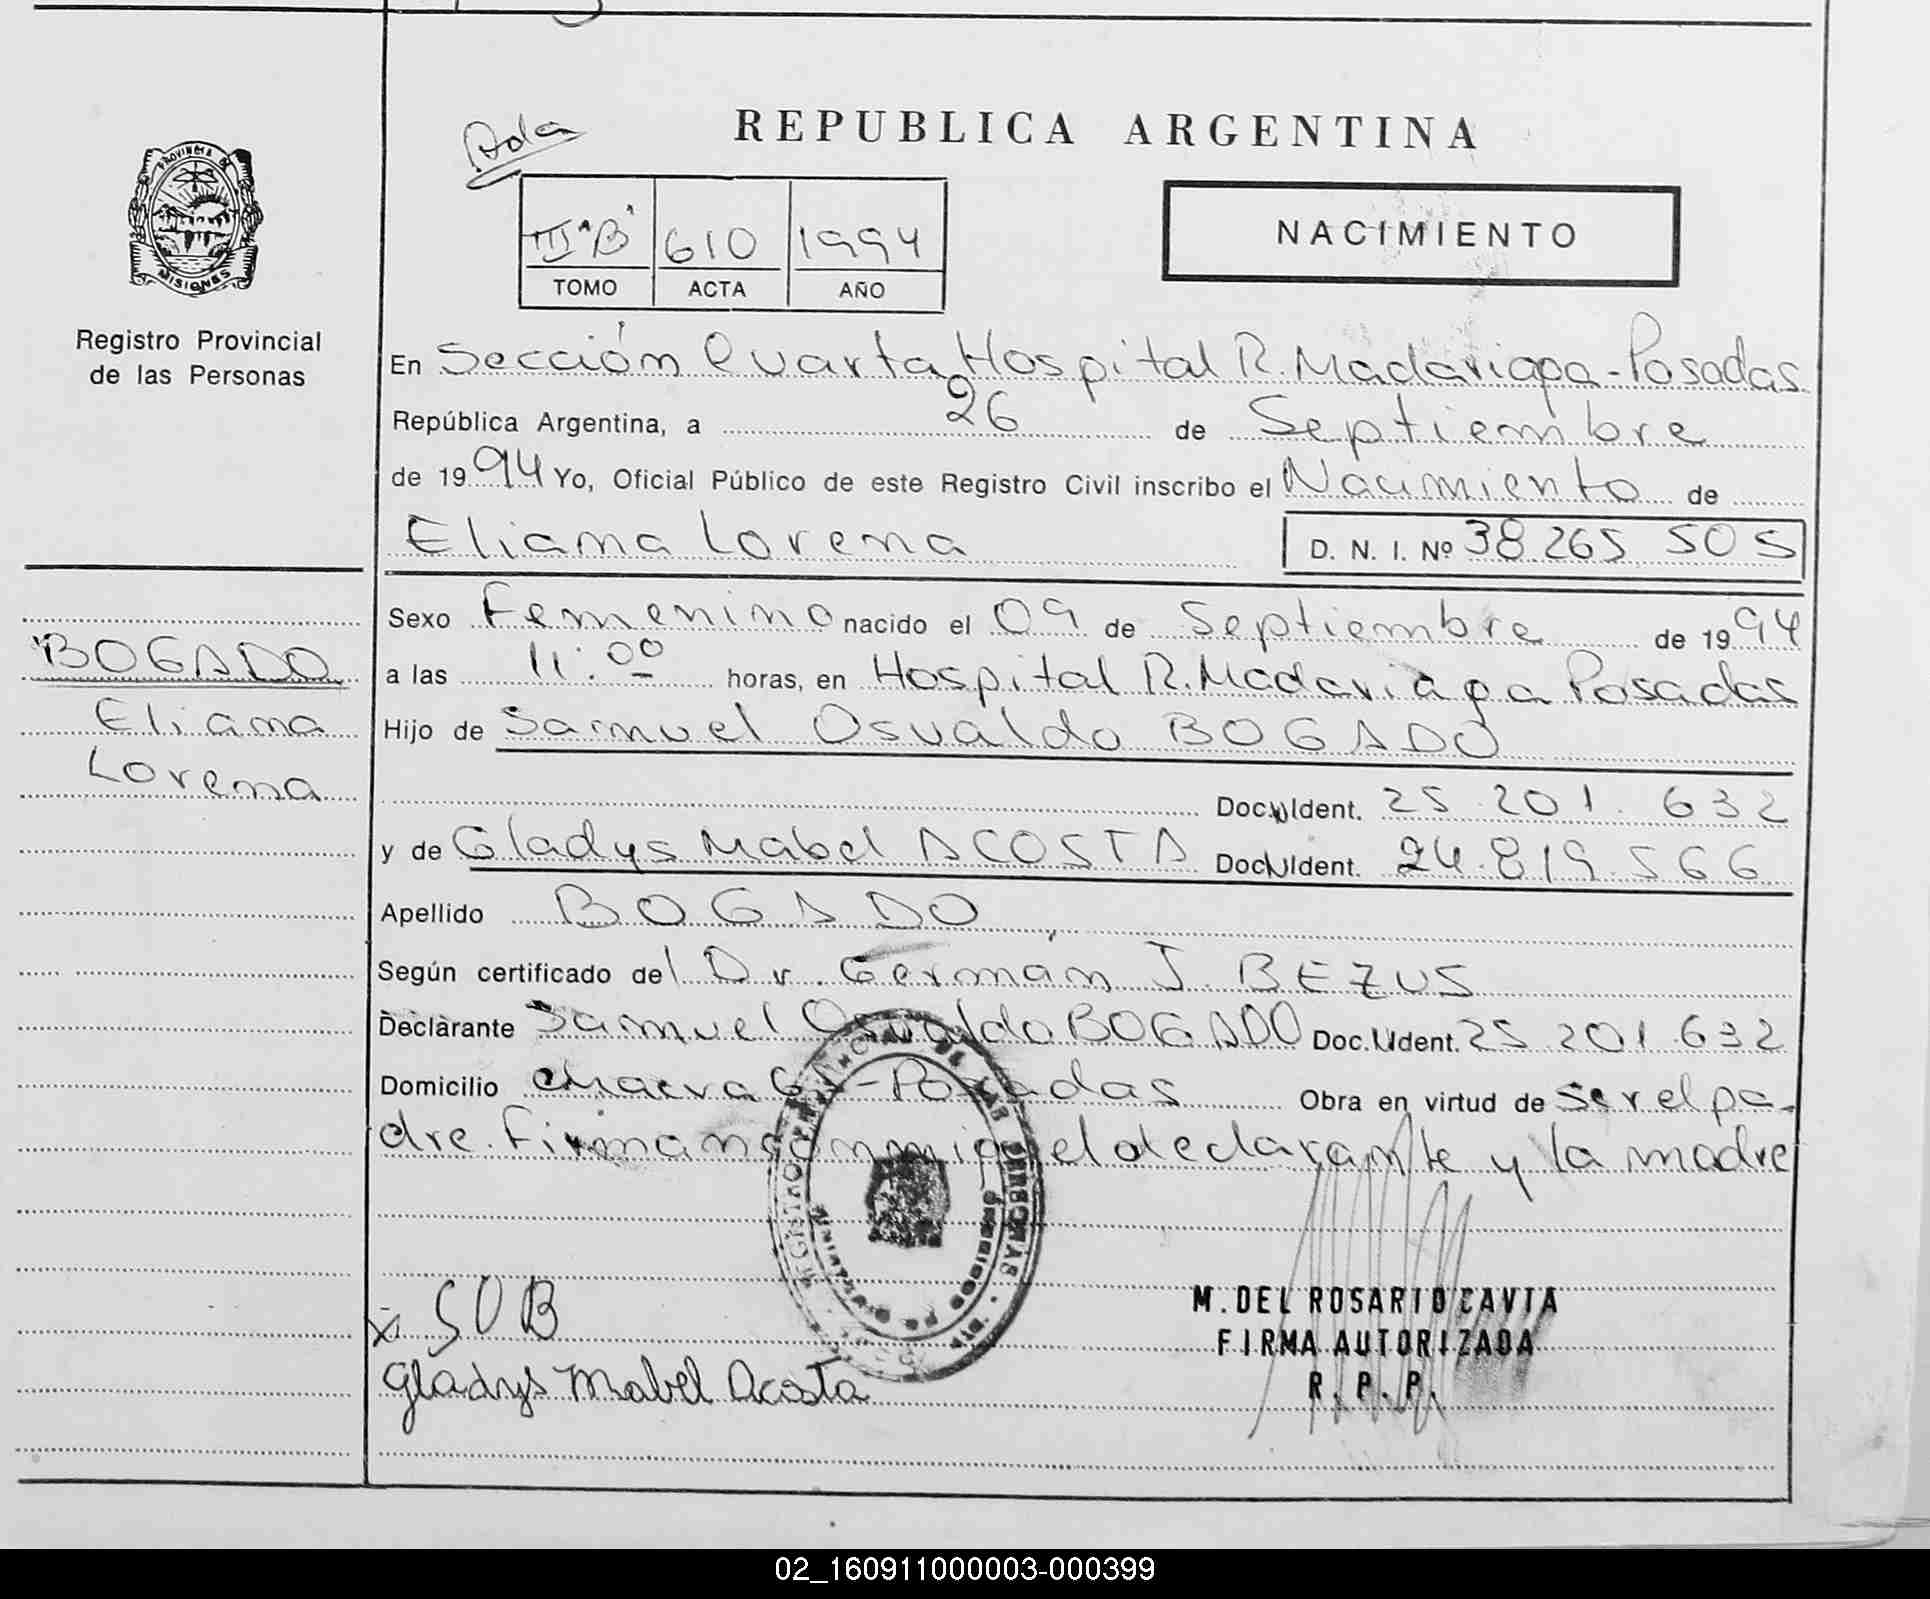 REPUBLICA ARGENTINA
PROVINCIA DE
MISIONES
Registro Provincial
de las Personas
III "B" 610 1994
TOMO ACTA AÑO
NACIMIENTO
En Sección Cuarta Hospital R. Madariaga - Posadas
República Argentina, a 26 de Septiembre
de 1994 Yo, Oficial Público de este Registro Civil inscribo el Nacimiento de
Eliana Lorena
D. N. I. Nº 38.265.505
BOGADO
Eliana
Lorena
Sexo Femenino nacido el 09 de Septiembre de 1994
a las 11:00 horas, en Hospital R. Madariaga Posadas
Hijo de Samuel Osvaldo BOGADO
Doc. Ident. 25.201.632
y de Gladys Mabel ACOSTA Doc. Ident. 24.819.566
Apellido BOGADO
Según certificado del Dr. Germán J. BEZUS
Declarante Samuel Osvaldo BOGADO Doc. Ident. 25.201.632
Domicilio Chacra - Posadas Obra en virtud de ser el pa-
dre. Firman conmigo el declarante y la madre
x SOB
Gladys Mabel Acosta
M. DEL ROSARIO CAVIA
FIRMA AUTORIZADA
R. P. P.
02_160911000003-000399